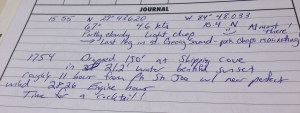 JOURNAL
1555 N 29° 43.620 W 84° 48.033
67° 46 kts 10.4 N Almost
Partly cloudy Light chop There!
Last leg in St. Georg Sound - pork chops marinating
1754 Dropped 150' at Shipping Cove
in 8 1/2' water beautiful sunset
roughly 11 hours from Pt St Joe w/ near perfect
wind 2826 Engine hour
Time for a cocktail!